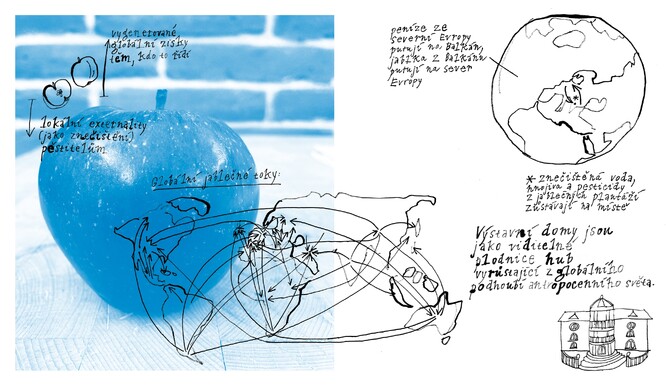 vygenerované,
globální zisky
těm, kdo to řídí
lokální externality
(jako znečištění)
pěstitelům
Globální jablečné toky:
peníze ze
severní Evropy
putují na Balkán,
jablka z Balkánu
putují na sever
Evropy
* znečištěná voda,
hnojiva a pesticidy
z jablečných plantáží
zůstávají na místě
Výstavní domy jsou
jako viditelné
plodnice hub
vyrůstající z globálního
podhoubí antropocenního světa.